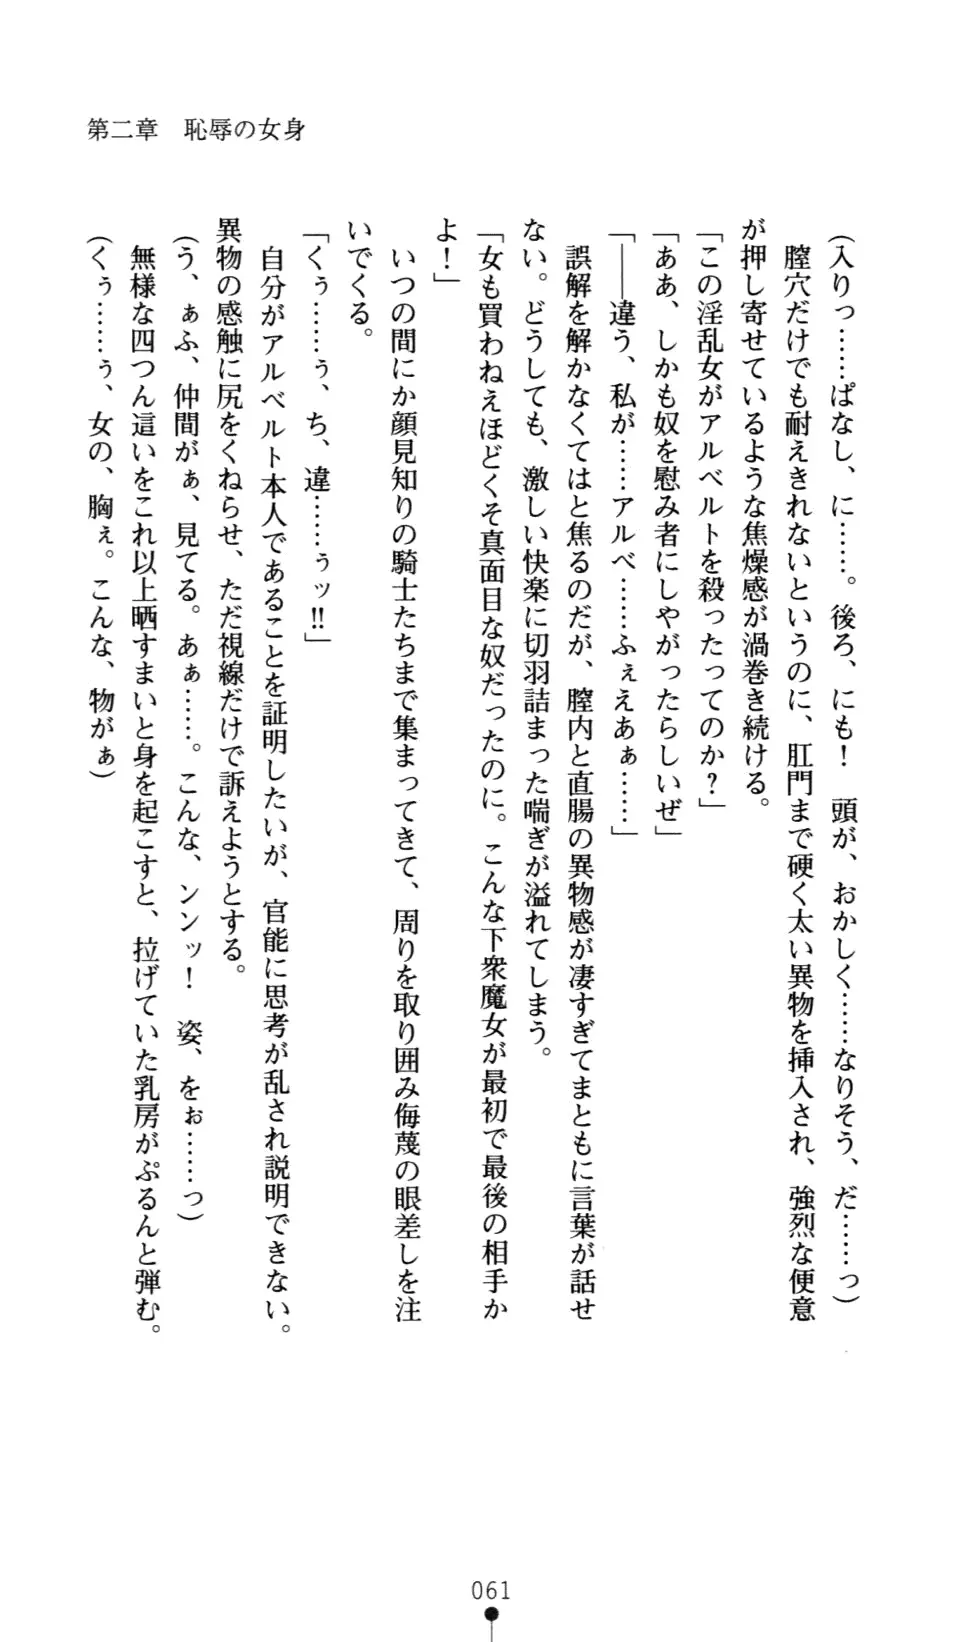 第二章　恥辱の女身
（入りっ……ぱなし、に……。後ろ、にも！　頭が、おかしく……なりそう、だ……っ）
　膣穴だけでも耐えきれないというのに、肛門まで硬く太い異物を挿入され、強烈な便意
が押し寄せているような焦燥感が渦巻き続ける。
「この淫乱女がアルベルトを殺ったってのか？」
「ああ、しかも奴を慰み者にしやがったらしいぜ」
「――違う、私が……アルベ……ふぇえあぁ……」
　誤解を解かなくてはと焦るのだが、膣内と直腸の異物感が凄すぎてまともに言葉が話せ
ない。どうしても、激しい快楽に切羽詰まった喘ぎが溢れてしまう。
「女も買わねえほどくそ真面目な奴だったのに。こんな下衆魔女が最初で最後の相手か
よ！」
　いつの間にか顔見知りの騎士たちまで集まってきて、周りを取り囲み侮蔑の眼差しを注
いでくる。
「くぅ……ぅ、ち、違……ぅッ!!」
　自分がアルベルト本人であることを証明したいが、官能に思考が乱され説明できない。
異物の感触に尻をくねらせ、ただ視線だけで訴えようとする。
（う、ぁふ、仲間がぁ、見てる。あぁ……。こんな、ンンッ！　姿、をぉ……っ）
　無様な四つん這いをこれ以上晒すまいと身を起こすと、拉げていた乳房がぷるんと弾む。
（くぅ……ぅ、女の、胸ぇ。こんな、物がぁ）
061